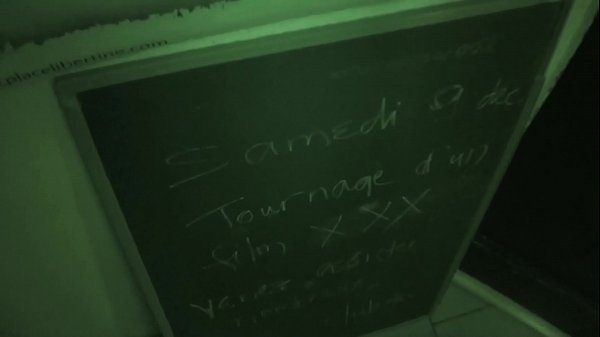 placelibertine.com
Samedi 9 dec
Tournage d'un
film XXX
venez assister